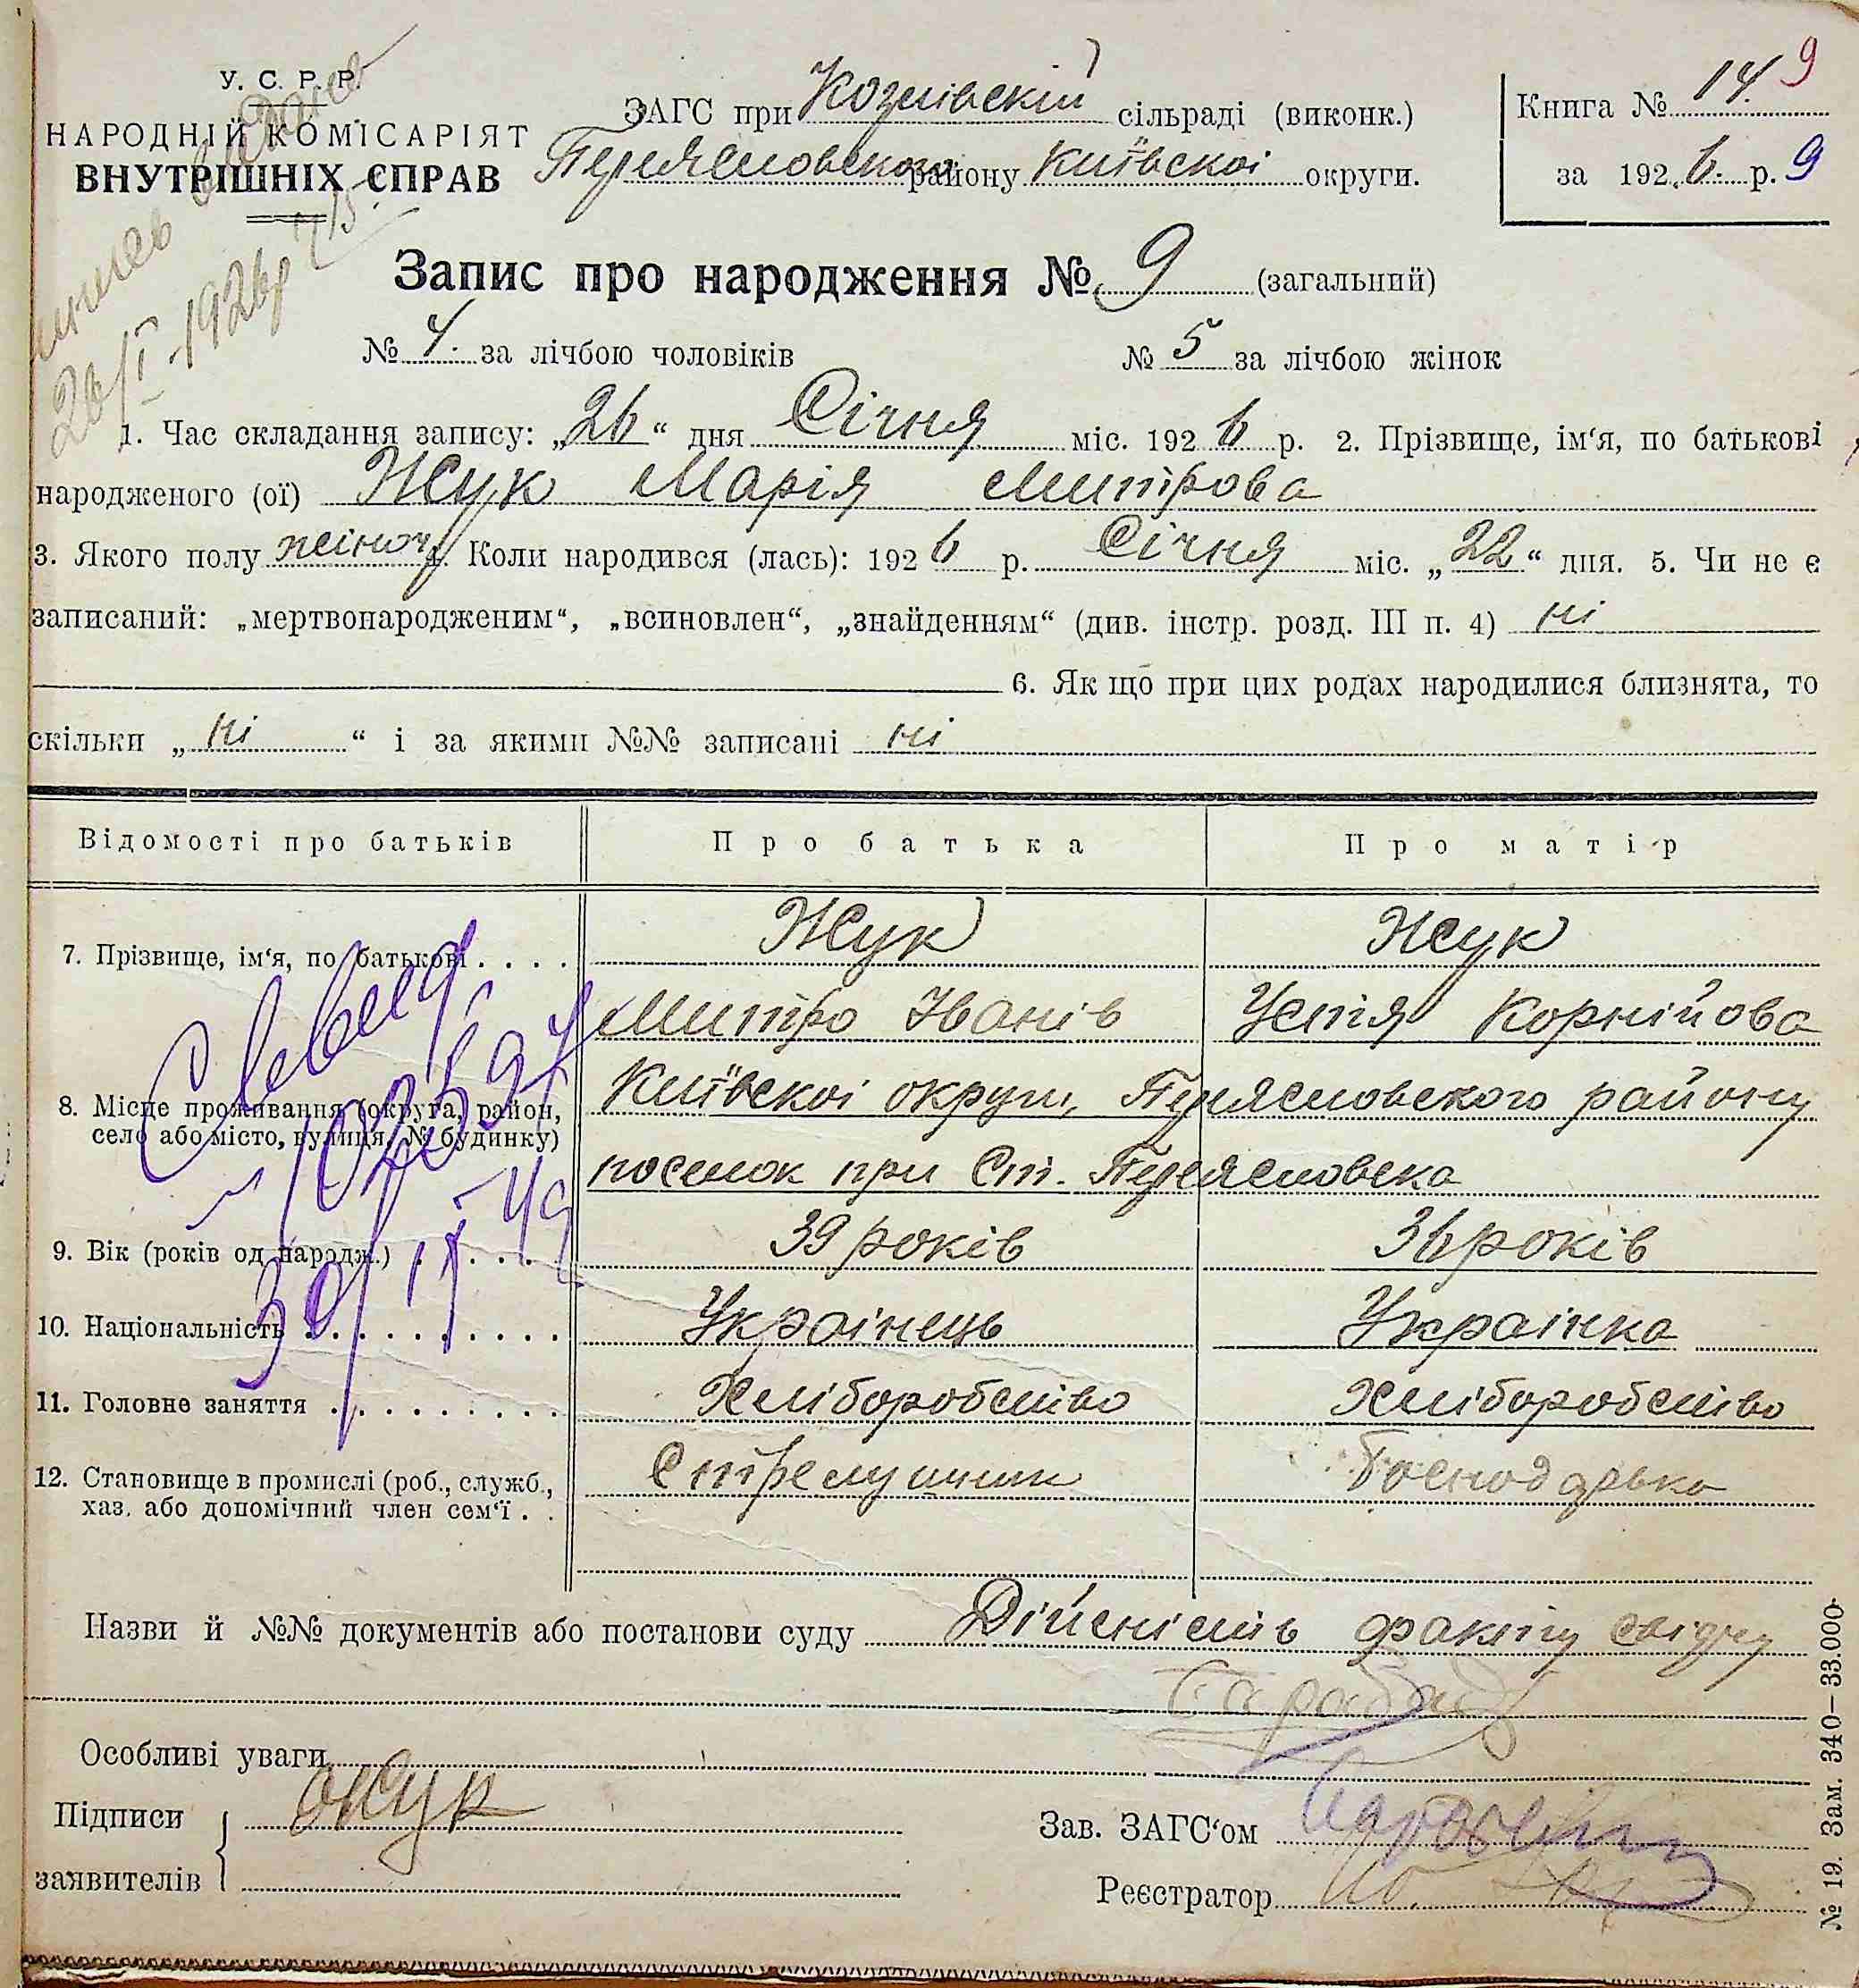 У. С. Р. Р.
НАРОДНІЙ КОМІСАРІЯТ
ВНУТРІШНІХ СПРАВ
26/I-1926р
ЗАГС при Козлівскій сільраді (виконк.)
Переясловского району Київскоі округи.
Книга № 14. 9
за 1926. р. 9
Запис про народження № 9 (загальний)
№ 4. за лічбою чоловіків № 5 за лічбою жінок
1. Час складання запису: „26“ дня Січня міс. 1926 р. 2. Прізвище, ім‘я, по батькові
народженого (ої) Жук Марія Митрова
3. Якого полу жіноч 4. Коли народився (лась): 1926 р. Січня міс. „22“ дня. 5. Чи не є
записаний: „мертвонародженим“, „всиновлен“, „знайденням“ (див. інстр. розд. III п. 4) ні
6. Як що при цих родах народилися близнята, то
скільки „ні“ і за якими №№ записані ні
Відомості про батьків Про батька Про матір
7. Прізвище, ім‘я, по батькові . . . . Жук Жук
Митро Іванів Устія Корнійова
8. Місце проживання (округа, район, село або місто, вулиця, № будинку) Київскоі округи, Переясловского району
поселок при Ст. Переясловска
30/IX-49
9. Вік (років од народж.) . . . . . 39 років 36 років
10. Національність . . . . . . . . . . Украінець Украінка
11. Головне заняття . . . . . . . . . . Хліборобство Хліборобство
12. Становище в промислі (роб., служб., Стрелушник Господарька
хаз. або допомічний член сем‘ї . .
Назви й №№ документів або постанови суду Дійсність факту свідчу
Особливі уваги
Підписи Жук
заявителів
Зав. ЗАГС‘ом
Реєстратор
№ 19. Зам. 340—33.000.